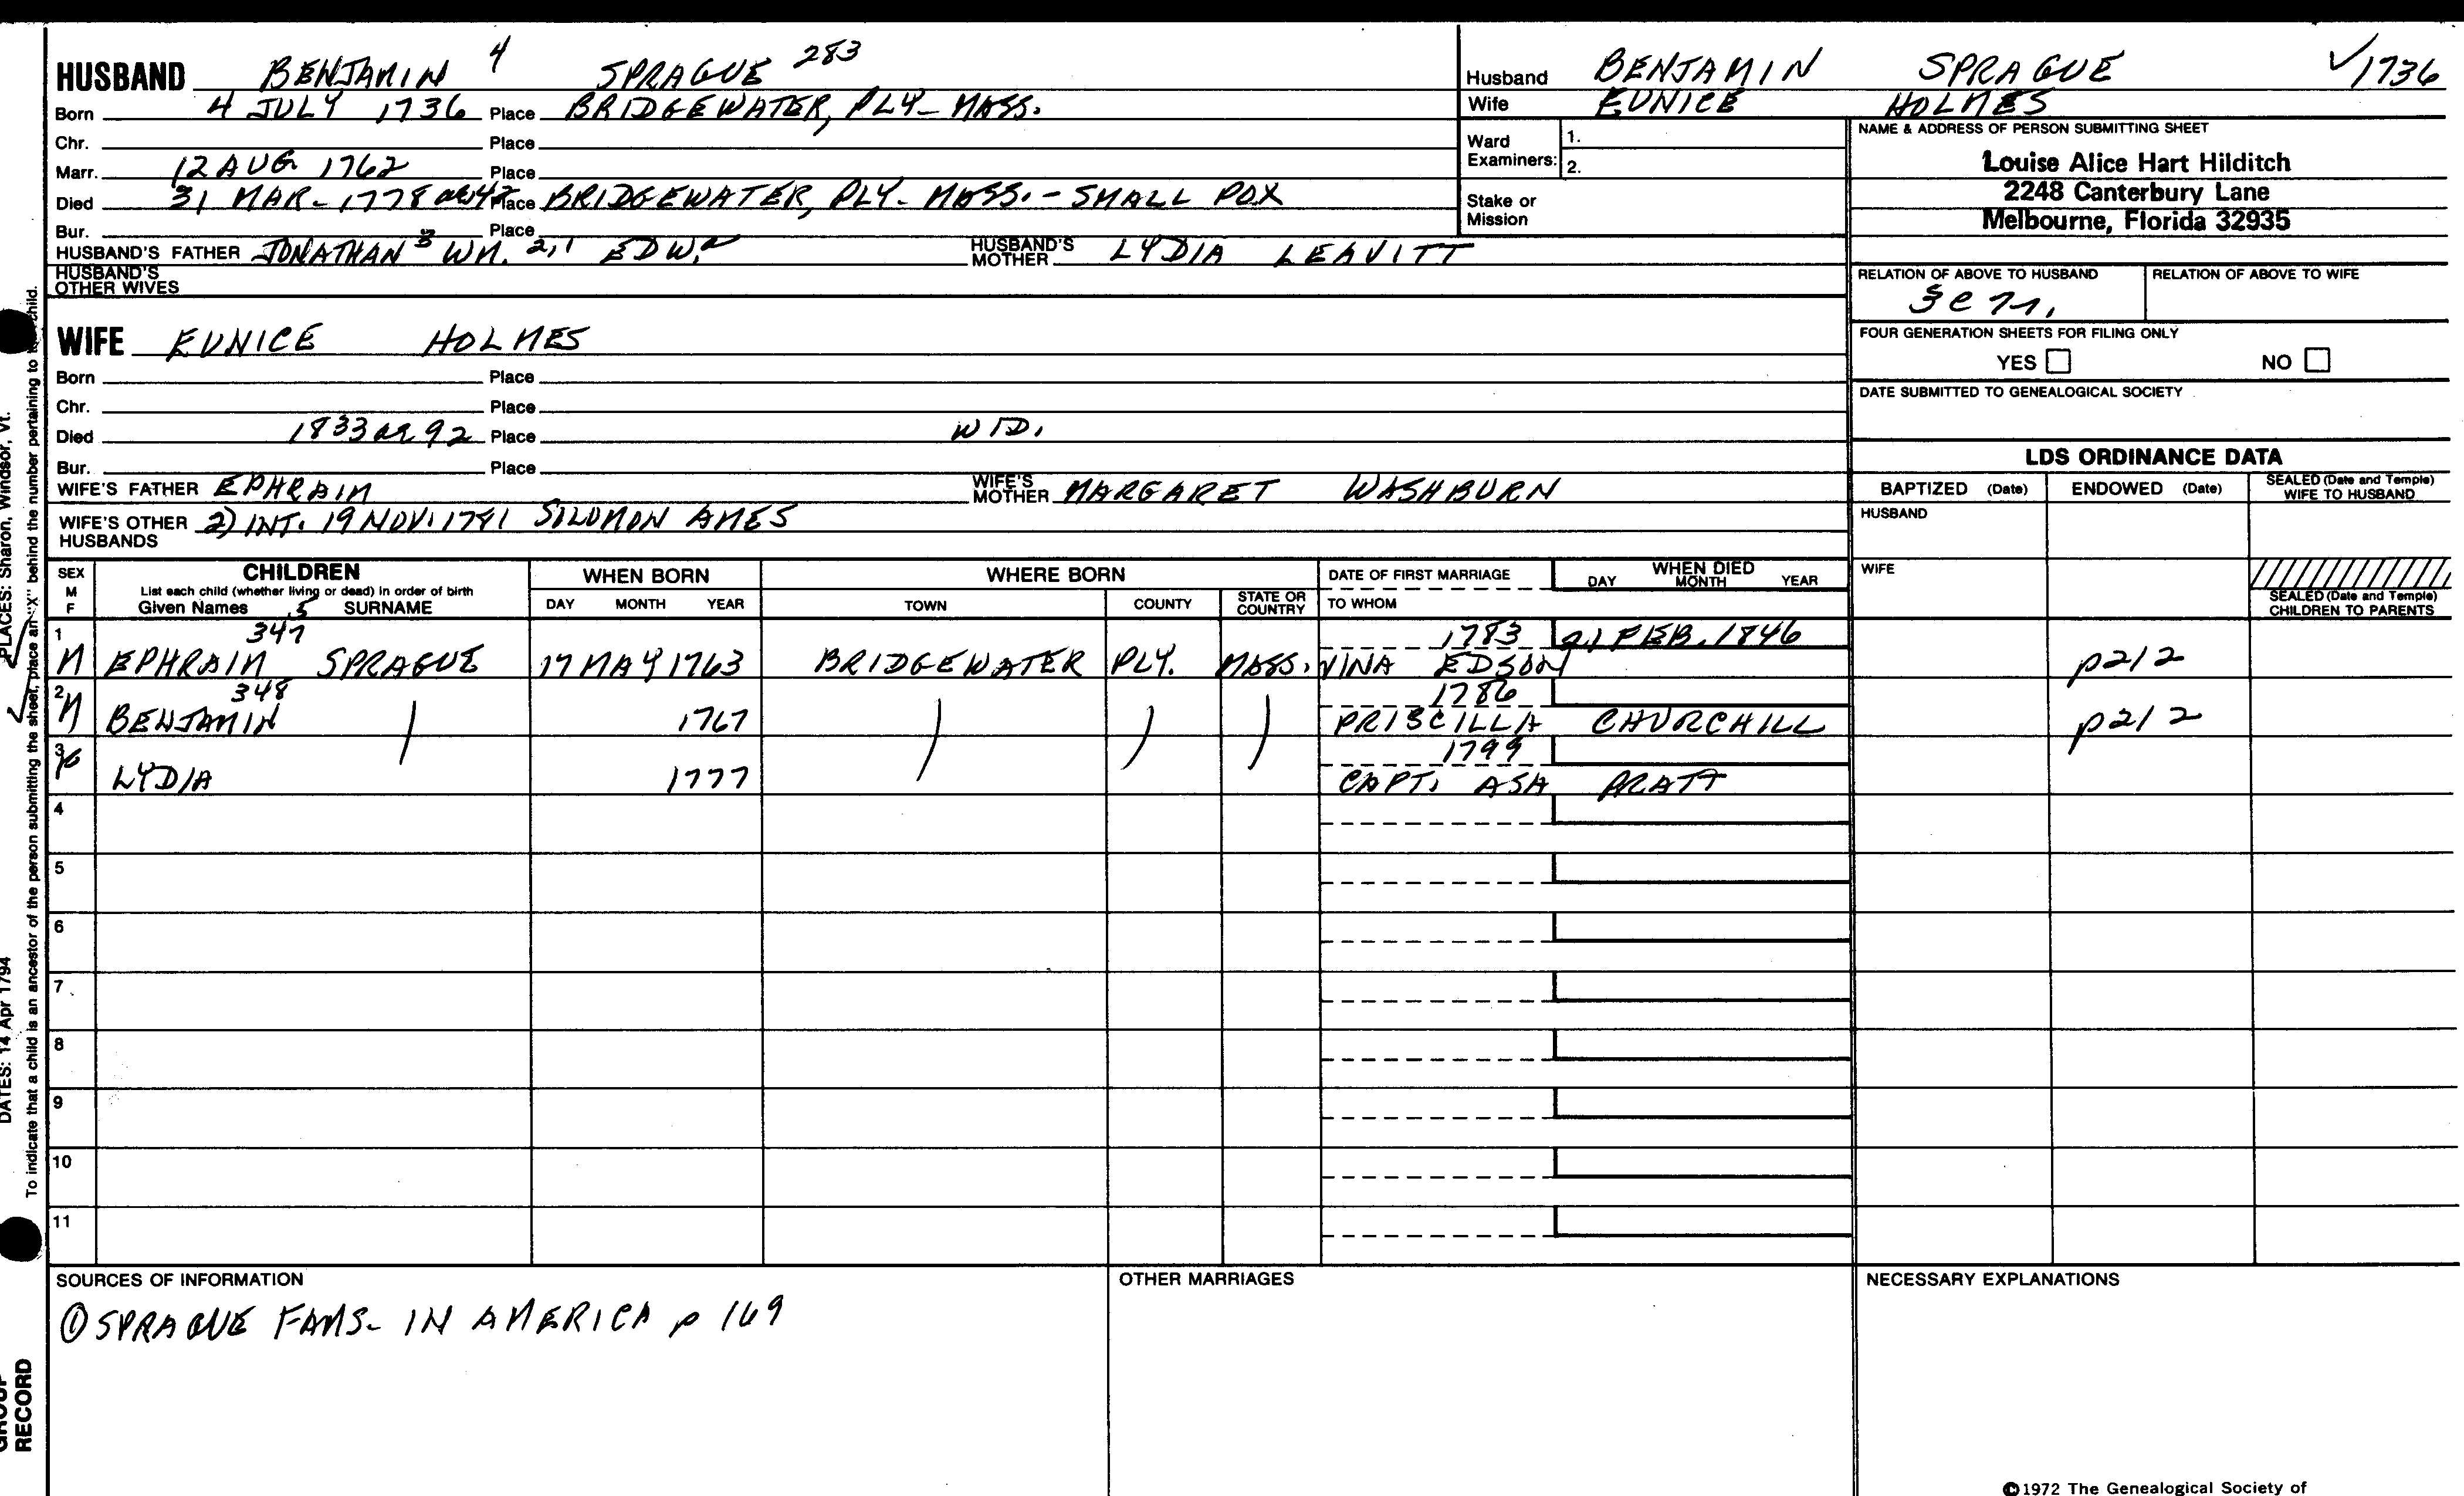 HUSBAND BENJAMIN 4 SPRAGUE 283
Born 4 JULY 1736 Place BRIDGEWATER, PLY- MASS.
Chr. Place
Marr. 12 AUG 1762 Place
Died 31 MAR- 1778 ae 42 Place BRIDGEWATER, PLY- MASS. - SMALL POX
Bur. Place
HUSBAND'S FATHER JONATHAN 3 WM. 2, 1 EDWD HUSBAND'S MOTHER LYDIA LEAVITT
HUSBAND'S OTHER WIVES
WIFE EUNICE HOLMES
Born Place
Chr. Place
Died 1833 ae 92 Place WID.
Bur. Place
WIFE'S FATHER EPHRAIM WIFE'S MOTHER MARGARET WASHBURN
WIFE'S OTHER HUSBANDS 2) INT. 19 NOV. 1781 SOLOMON AMES
Husband BENJAMIN SPRAGUE ✓1736
Wife EUNICE HOLMES
Ward Examiners: 1.
2.
Stake or Mission
NAME & ADDRESS OF PERSON SUBMITTING SHEET
Louise Alice Hart Hilditch
2248 Canterbury Lane
Melbourne, Florida 32935
RELATION OF ABOVE TO HUSBAND RELATION OF ABOVE TO WIFE
FOUR GENERATION SHEETS FOR FILING ONLY
YES NO
DATE SUBMITTED TO GENEALOGICAL SOCIETY
LDS ORDINANCE DATA
BAPTIZED (Date) ENDOWED (Date) SEALED (Date and Temple) WIFE TO HUSBAND
HUSBAND
WIFE
SEALED (Date and Temple) CHILDREN TO PARENTS
SEX M F CHILDREN WHEN BORN WHERE BORN DATE OF FIRST MARRIAGE WHEN DIED
List each child (whether living or dead) in order of birth
Given Names 5 SURNAME DAY MONTH YEAR TOWN COUNTY STATE OR COUNTRY TO WHOM DAY MONTH YEAR
1 347 1783 21 FEB. 1846
M EPHRAIM SPRAGUE 17 MAY 1763 BRIDGEWATER PLY. MASS. VINA EDSON p 212
2 348 1786
M BENJAMIN ) 1767 ) ) ) PRISCILLA CHURCHILL p 212
3 1799
LYDIA 1777 CAPT. ASA PRATT
4
5
6
7
8
9
10
11
SOURCES OF INFORMATION
① SPRAGUE FAMS- IN AMERICA p 169
OTHER MARRIAGES
NECESSARY EXPLANATIONS
©1972 The Genealogical Society of
PLACES: Sharon, Windsor, Vt.
DATES: 14 Apr 1794
To indicate that a child is an ancestor of the person submitting the sheet, place an "X" behind the number pertaining to child.
GROUP
RECORD